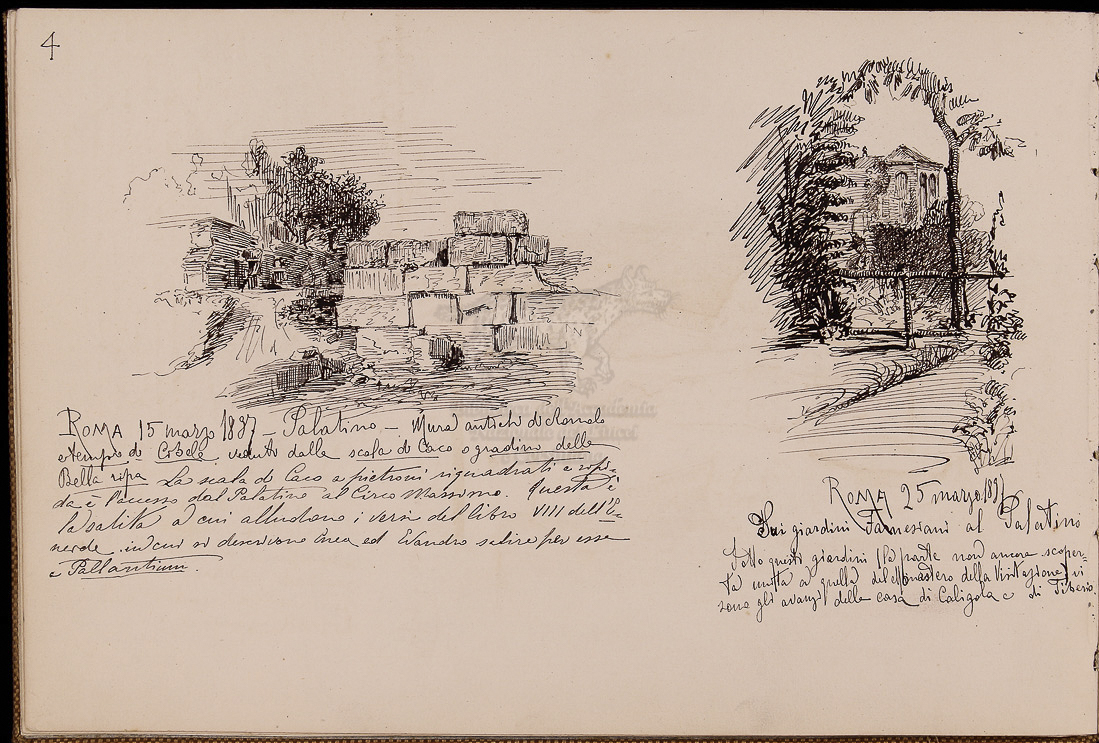 4
ROMA 15 marzo 1897 – Palatino – Mura antiche di Romolo
e tempio di Cibele, veduto dalla scala di Caco o gradino della
Bella ripa La scala di Caco a pietroni riquadrati e ripi-
da è l'accesso dal Palatino al Circo Massimo. Questa è
la salita a cui alludono i versi del libro VIII dell'E-
neide in cui si descrivono Enea ed Evandro salire per essa
a Pallantium.
ROMA 25 marzo 1897
Sui giardini Farnesiani al Palatino
Sotto questi giardini (la parte non ancora scoper-
ta unita a quella del Monastero della Visitazione) vi
sono gli avanzi della casa di Caligola e di Tiberio.